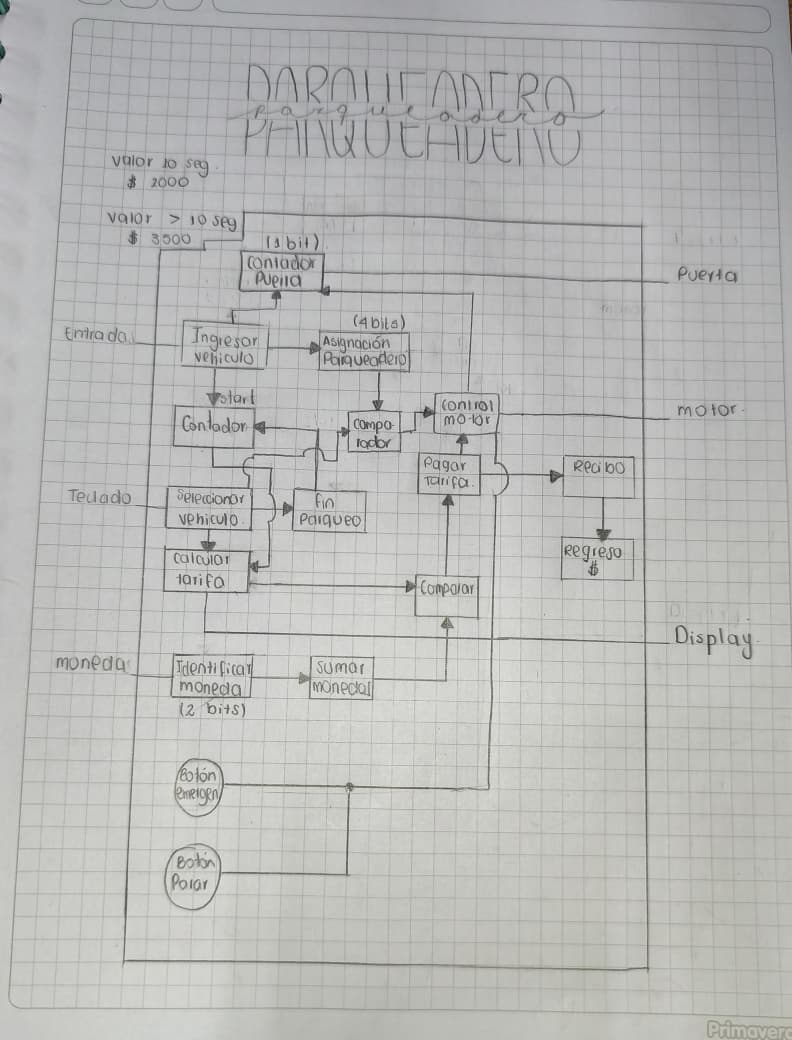 PARQUEADERO
parqueadero
valor 10 seg.
$ 2000
valor > 10 seg
$ 3500
(1 bit)
Contador
Puerta
Puerta
Entrada
Ingresar
vehiculo
(4bits)
Asignación
Parqueadero
start
Contador
compa-
rador
control
motor
motor.
Pagar
Tarifa.
Recibo
Teclado
Seleccionar
vehiculo.
Fin
Parqueo
calcular
tarifa
Comparar
Regreso
$
Display.
moneda
Identificar
moneda
(2 bits)
sumar
monedas
Botón
emergen
Botón
Parar
Primavera